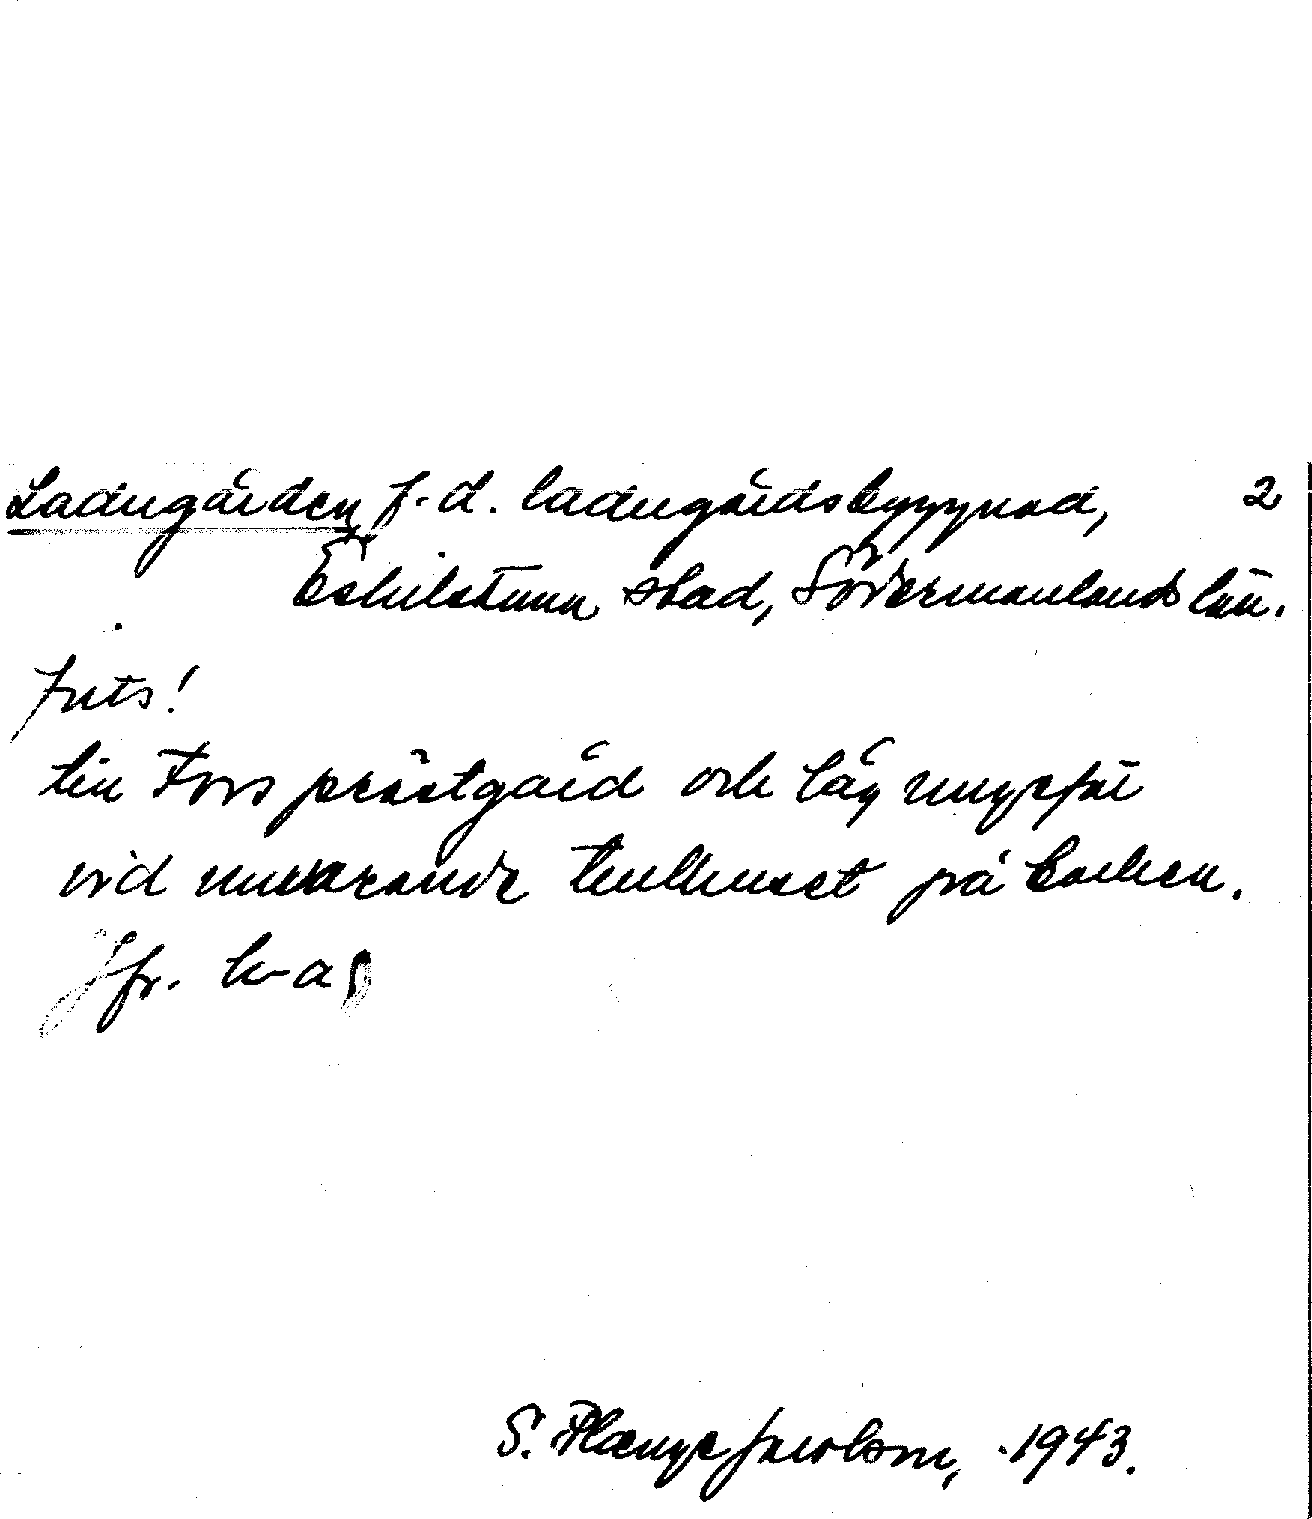 Ladugården f.d. ladugårdsbyggnad, 2
Eskilstuna stad, Södermanlands län.
forts!
till Fors prästgård och låg ungefär
vid nuvarande tullhuset på backen.
Jfr. k-a
S. Plænge Jacobson, 1943.